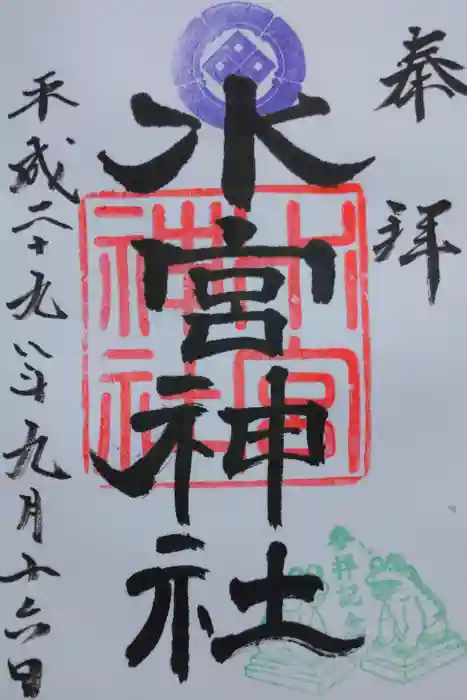 奉拝
水宮神社
平成二十九年九月十六日
水宮神社
参拝記念